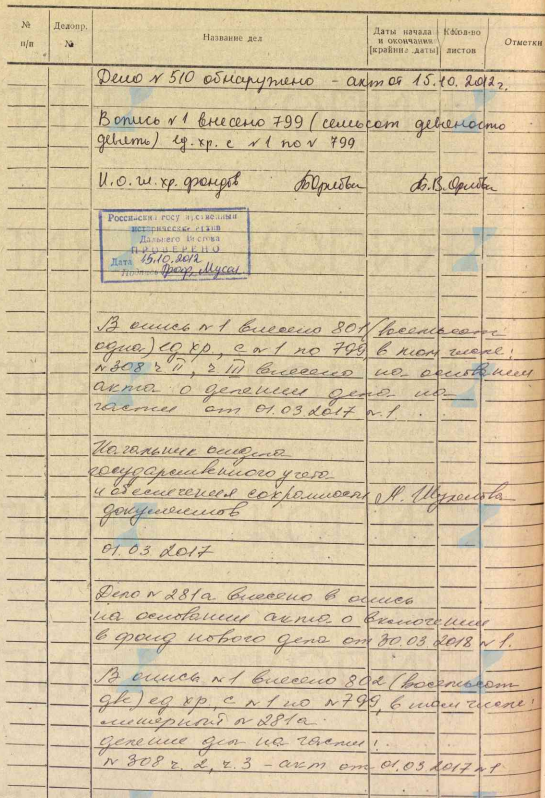 № п/п
Делопр. №
Название дел
Даты начала и окончания (крайние даты)
Кол-во листов
Отметки
Дело № 510 обнаружено - акт от 15.10.2012г.
В опись № 1 внесено 799 (семьсот девяносто
девять) ед. хр. с № 1 по № 799
И.о. гл. хр. фондов
Российский государственный
исторический архив
Дальнего Востока
ПРОВЕРЕНО
Дата 15.10.2012
Подпись
В опись № 1 внесено 801 (восемьсот
одна) ед хр, с № 1 по 799, в том числе:
№ 308 ч II, ч III внесено на основании
акта о делении дела на
части от 01.03.2017 № 1.
Начальник отдела
государственного учета
и обеспечения сохранности
документов
01.03.2017
Дело № 281а внесено в опись
на основании акта о включении
в фонд нового дела от 30.03.2018 № 1.
В опись № 1 внесено 802 (восемьсот
две) ед хр, с № 1 по № 799, в том числе:
литерный № 281а
деление дел на части:
№ 308 ч. 2, ч. 3 - акт от 01.03.2017 № 1